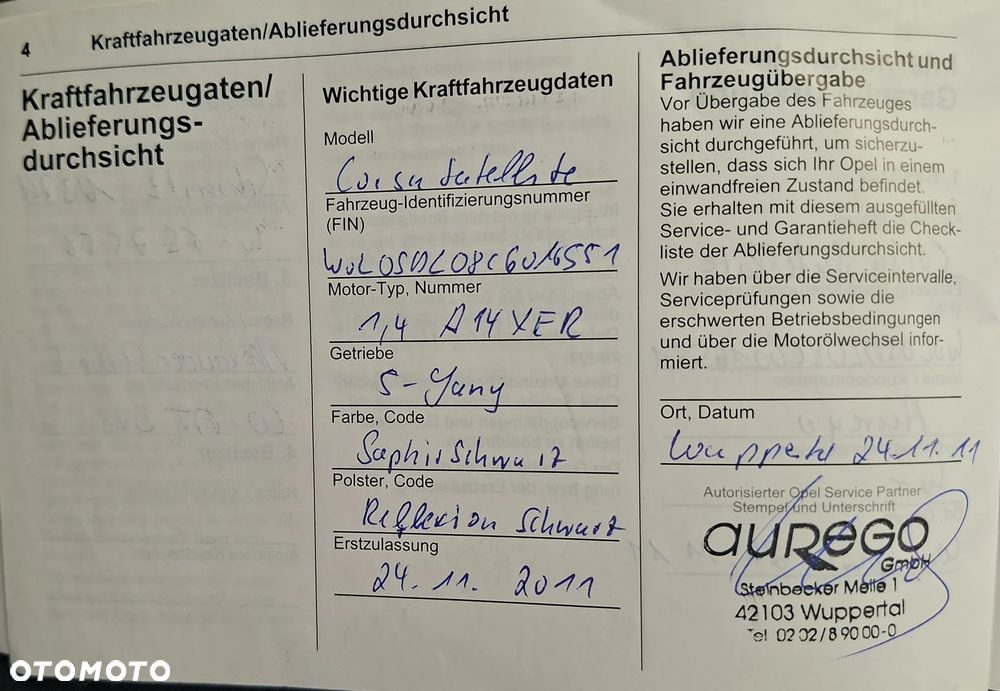 4
Kraftfahrzeugaten/Ablieferungsdurchsicht
Kraftfahrzeugaten/
Ablieferungs-
durchsicht
Wichtige Kraftfahrzeugdaten
Modell
Corsa Satellite
Fahrzeug-Identifizierungsnummer
(FIN)
W0L0SDL08C6016551
Motor-Typ, Nummer
1,4 A14XER
Getriebe
5-Gang
Farbe, Code
Saphirschwarz
Polster, Code
Reflexion Schwarz
Erstzulassung
24.11. 2011
Ablieferungsdurchsicht und
Fahrzeugübergabe
Vor Übergabe des Fahrzeuges
haben wir eine Ablieferungsdurch-
sicht durchgeführt, um sicherzu-
stellen, dass sich Ihr Opel in einem
einwandfreien Zustand befindet.
Sie erhalten mit diesem ausgefüllten
Service- und Garantieheft die Check-
liste der Ablieferungsdurchsicht.
Wir haben über die Serviceintervalle,
Serviceprüfungen sowie die
erschwerten Betriebsbedingungen
und über die Motorölwechsel infor-
miert.
Ort, Datum
Wuppertal 24.11.11
Autorisierter Opel Service Partner
Stempel und Unterschrift
aurego
GmbH
Steinbecker Meile 1
42103 Wuppertal
Tel 02 02 / 8 90 00-0
OTOMOTO